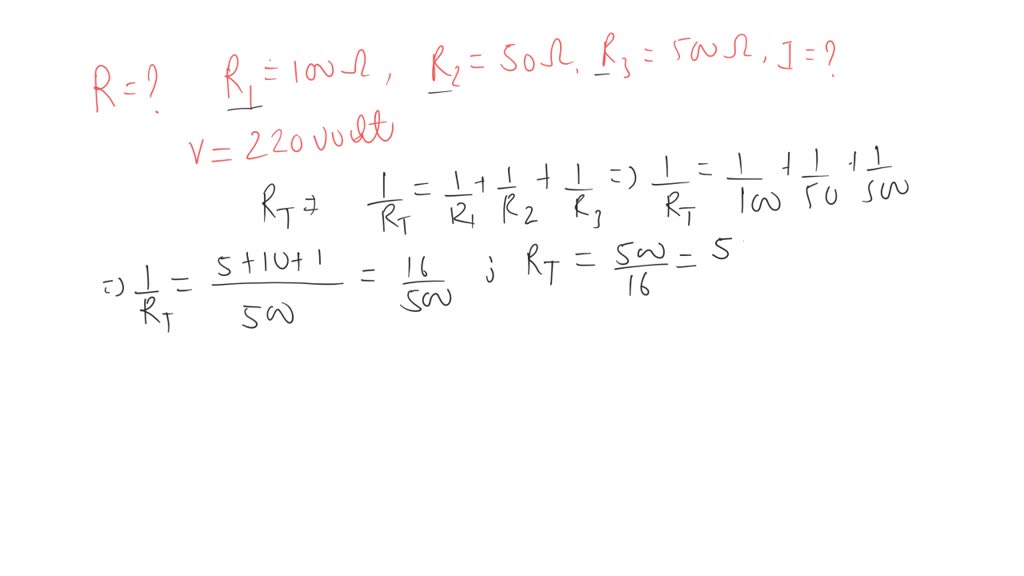 R = ? R₁ = 100Ω, R₂ = 50Ω, R₃ = 500Ω, I = ?
V = 220 volt
R_T ⇒ 1/R_T = 1/R₁ + 1/R₂ + 1/R₃ ⇒ 1/R_T = 1/100 + 1/50 + 1/500
⇒ 1/R_T = (5+10+1)/500 = 16/500 ; R_T = 500/16 = 5